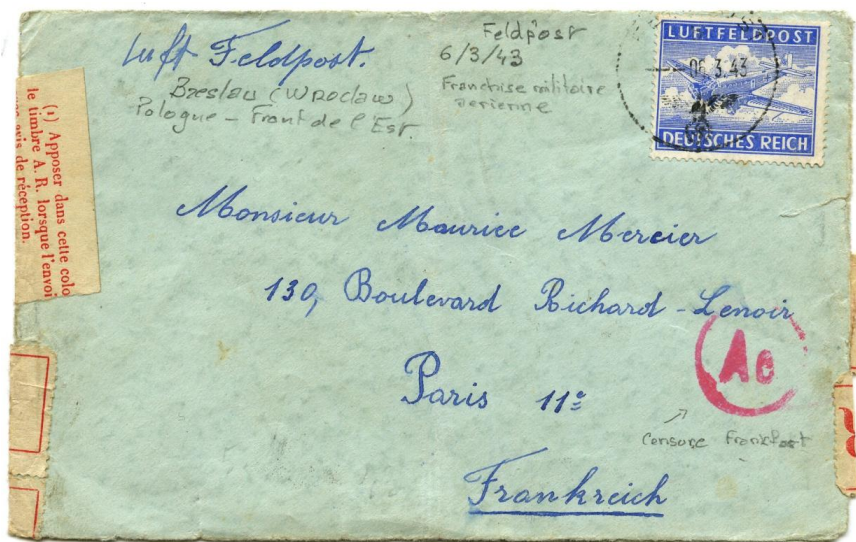 Luft-Feldpost.
Breslau (Wroclaw)
Pologne - Front de l'Est.
Feldpost
6/3/43
Franchise militaire
aerienne
LUFTFELDPOST
06.3.43
DEUTSCHES REICH
(1) Apposer dans cette colo
le timbre A. R. lorsque l'envoi
avis de réception.
Monsieur Maurice Mercier
130, Boulevard Richard-Lenoir
Paris 11e
Frankreich
Ae
Censure Frankfort